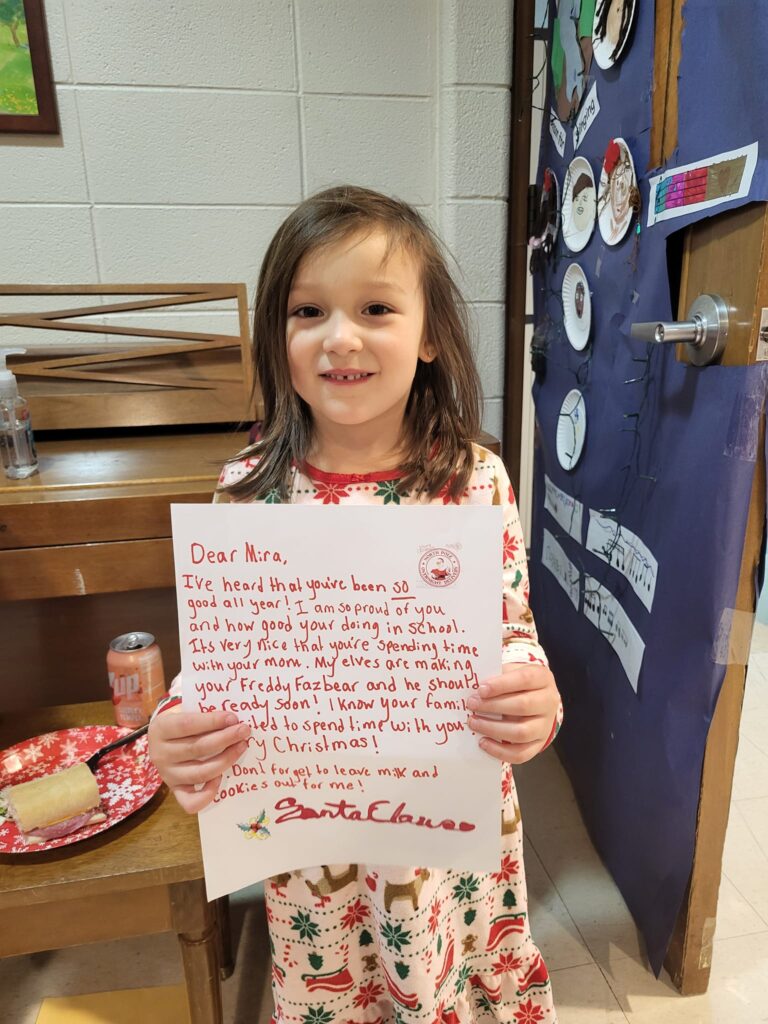 Dear Mira,
NORTH POLE
I've heard that you've been so
good all year! I am so proud of you
and how good your doing in school.
Its very nice that you're spending time
with your mom. My elves are making
your Freddy Fazbear and he should
be ready soon! I know your famil
ited to spend time with you
ry Christmas!
Dont forget to leave milk and
cookies out for me!
Santa Claus
up
singing